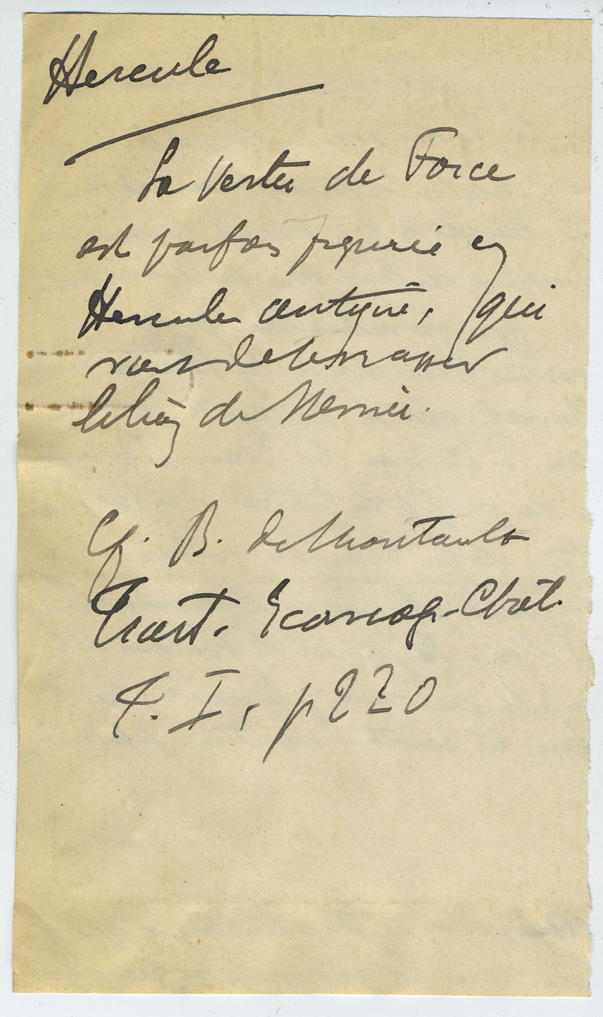 Hercule
La vertu de Force
est parfois figurée en
Hercule antique, qui
vient de terrasser
le lion de Némée.
Cf. B. de Montault
Trait. Iconog. Chrét.
T. I, p 220